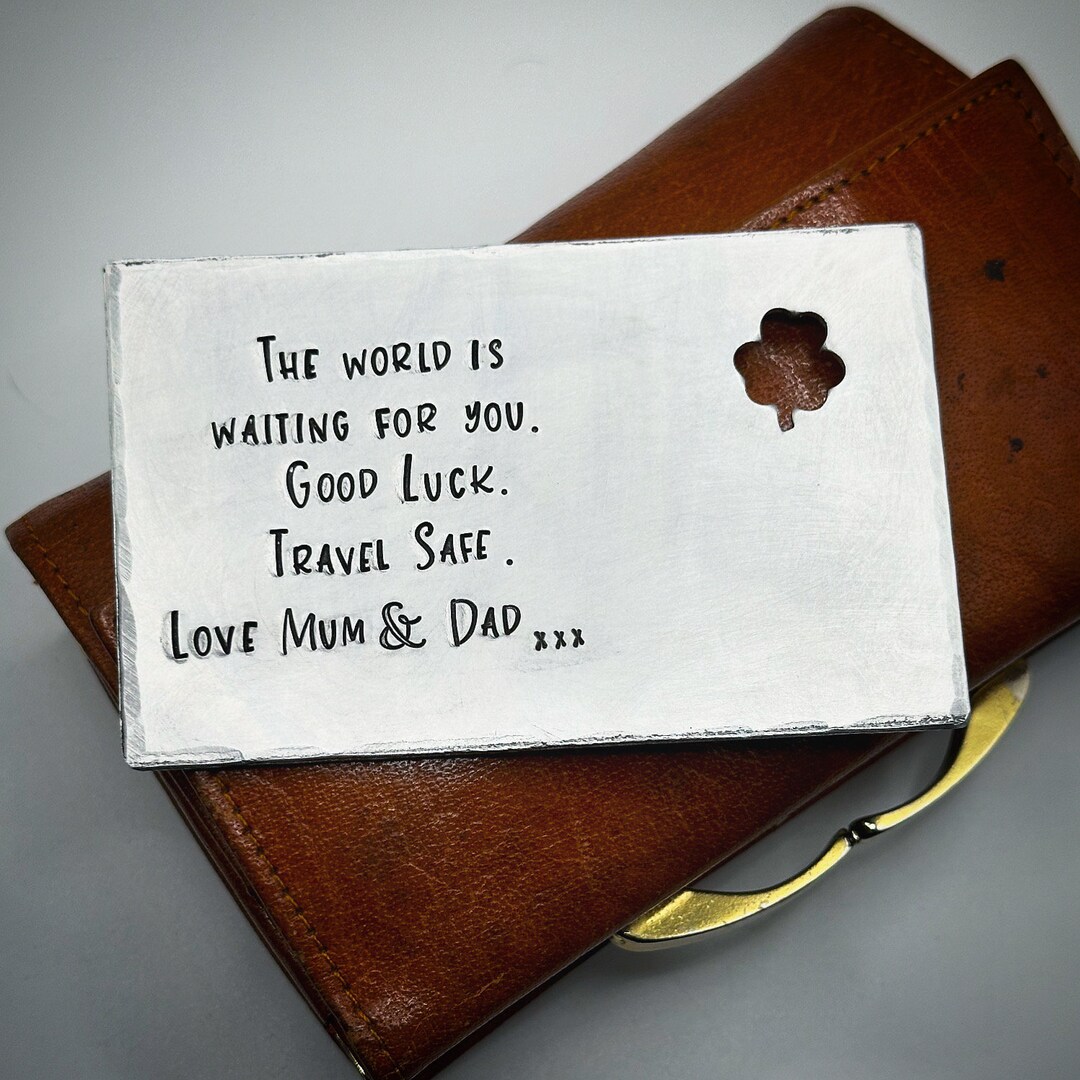 The world is
waiting for you.
Good Luck.
Travel Safe.
Love Mum & Dad xxx